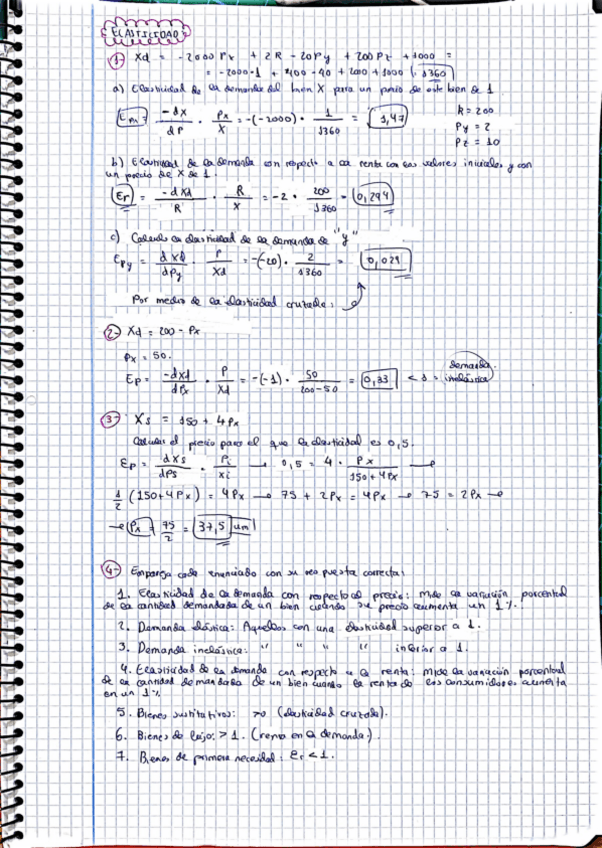 ELASTICIDAD
1- Xd = -2000 Px + 2R - 20Py + 200 Pz + 1000 =
= -2000·1 + 400 - 40 + 2000 + 1000 (1360)
a) Elasticidad de la demanda del bien X para un precio de este bien de 1
EPx = -dX/dP · Px/X = -(-2000) · 1/1360 = 1,47
R = 200
Py = 2
Pz = 10
b) Elasticidad de la demanda con respecto a la renta con los valores iniciales y con
un precio de X de 1.
Er = -dXd/R · R/X = -2 · 200/1360 = 0,294
c) Calcula la elasticidad de la demanda de "y"
EPy = dXd/dPy · P/Xd = -(-20) · 2/1360 = 0,029
Por medio de la elasticidad cruzada:
2- Xd = 200 - Px
Px = 50.
Ep = -dXd/dPx · P/Xd = -(-1) · 50/200-50 = 0,33 < 1 = demanda inelástica
3- Xs = 150 + 4Px
Calcular el precio para el que la elasticidad es 0,5.
Ep = dXs/dPs · Pi/Xi → 0,5 = 4 · Px/150+4Px →
1/2 (150+4Px) = 4Px → 75 + 2Px = 4Px → 75 = 2Px →
→ Px = 75/2 = 37,5 um
4- Empareja cada enunciado con su respuesta correcta:
1. Elasticidad de la demanda con respecto al precio: mide la variación porcentual
de la cantidad demandada de un bien cuando su precio aumenta un 1%.
2. Demanda elástica: Aquellos con una elasticidad superior a 1.
3. Demanda inelástica: " " " " inferior a 1.
4. Elasticidad de la demanda con respecto a la renta: mide la variación porcentual
de la cantidad demandada de un bien cuando la renta de los consumidores aumenta
en un 1%
5. Bienes sustitutivos: >0 (elasticidad cruzada).
6. Bienes de lujo: > 1. (renta en la demanda).
7. Bienes de primera necesidad: Er < 1.